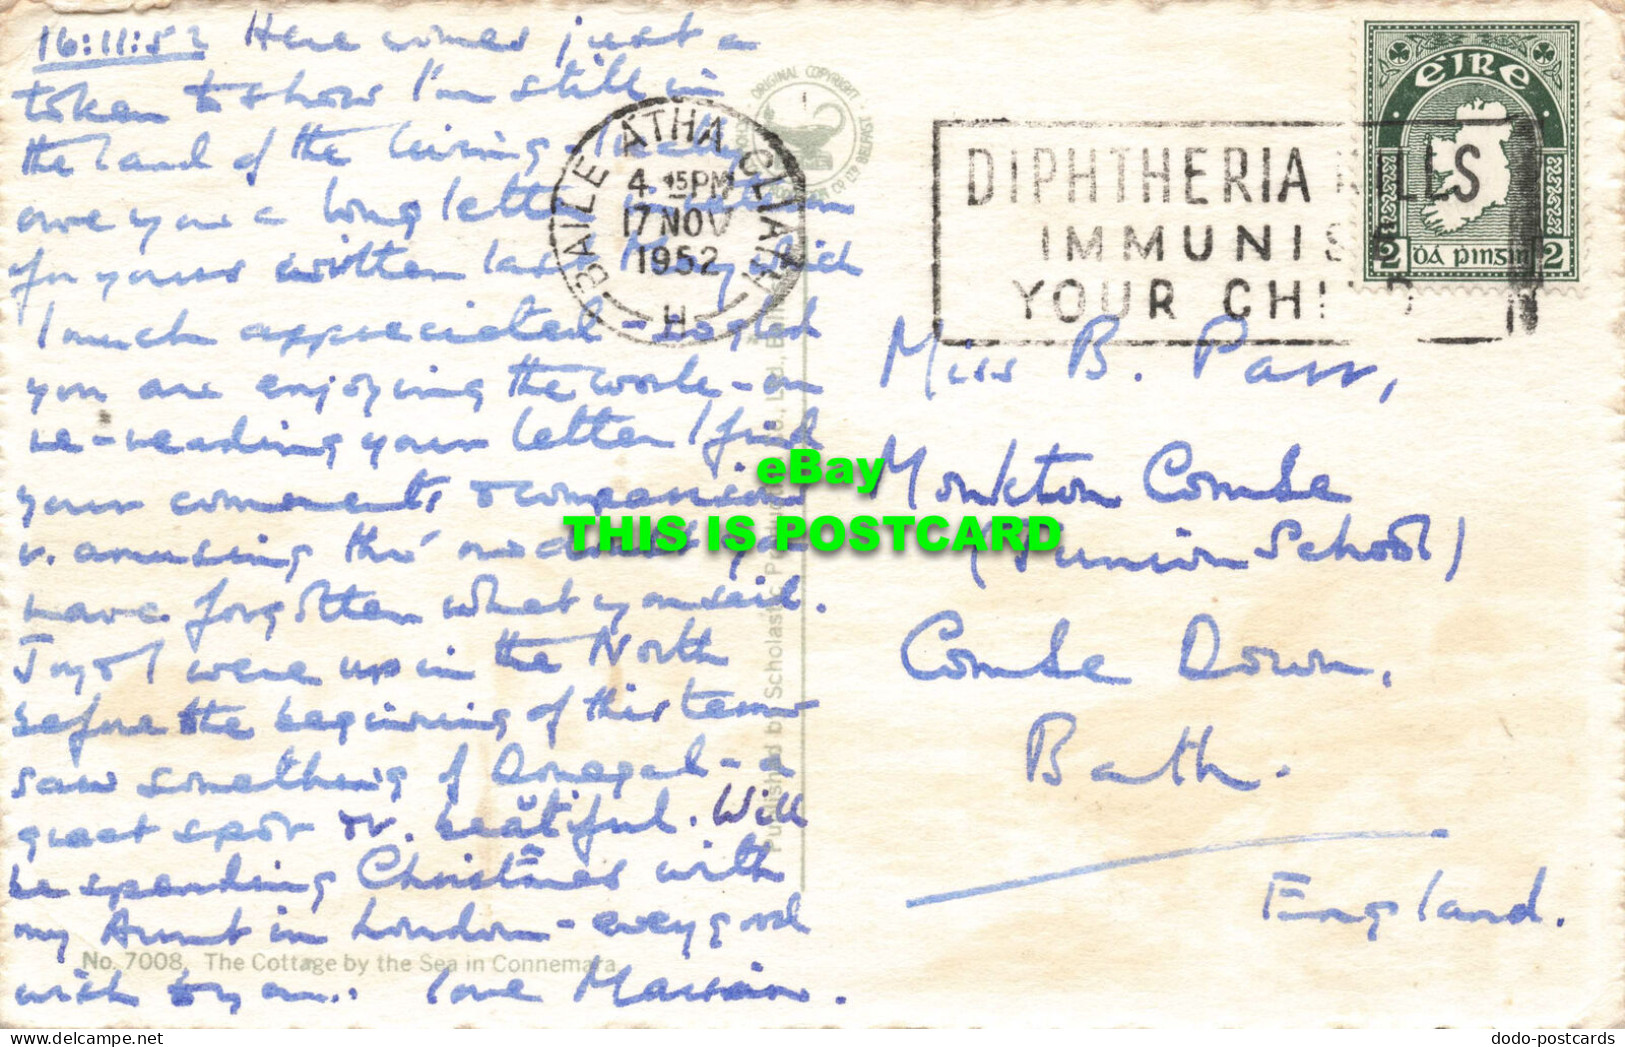 16:11:52 Here comes just a
token to show I'm still in
the land of the living - I really
owe you a long letter in return
for yours written last May which
I much appreciated - so glad
you are enjoying the work - on
re-reading your letter I find
your comments & comparisons
v. amusing tho' no doubt you
have forgotten what you said.
Joy & I were up in the North
before the beginning of this term
saw something of Donegal - a
great spot & v. beautiful. Will
be spending Christmas with
my Aunt in London - every good
wish to you.. love Marion.
No. 7008. The Cottage by the Sea in Connemara
ORIGINAL COPYRIGHT
BAILE ÁTHA CLIATH
4 15PM
17 NOV
1952
H
DIPHTHERIA KILLS
IMMUNISE
YOUR CHILD
EIRE
2 DÁ PINGIN 2
Miss B. Pass,
Monkton Combe
(Junior School)
Combe Down,
Bath.
England.
Published by Scholastic Production Co., Ltd., Belfast
eBay
THIS IS POSTCARD
delcampe.net
dodo-postcards